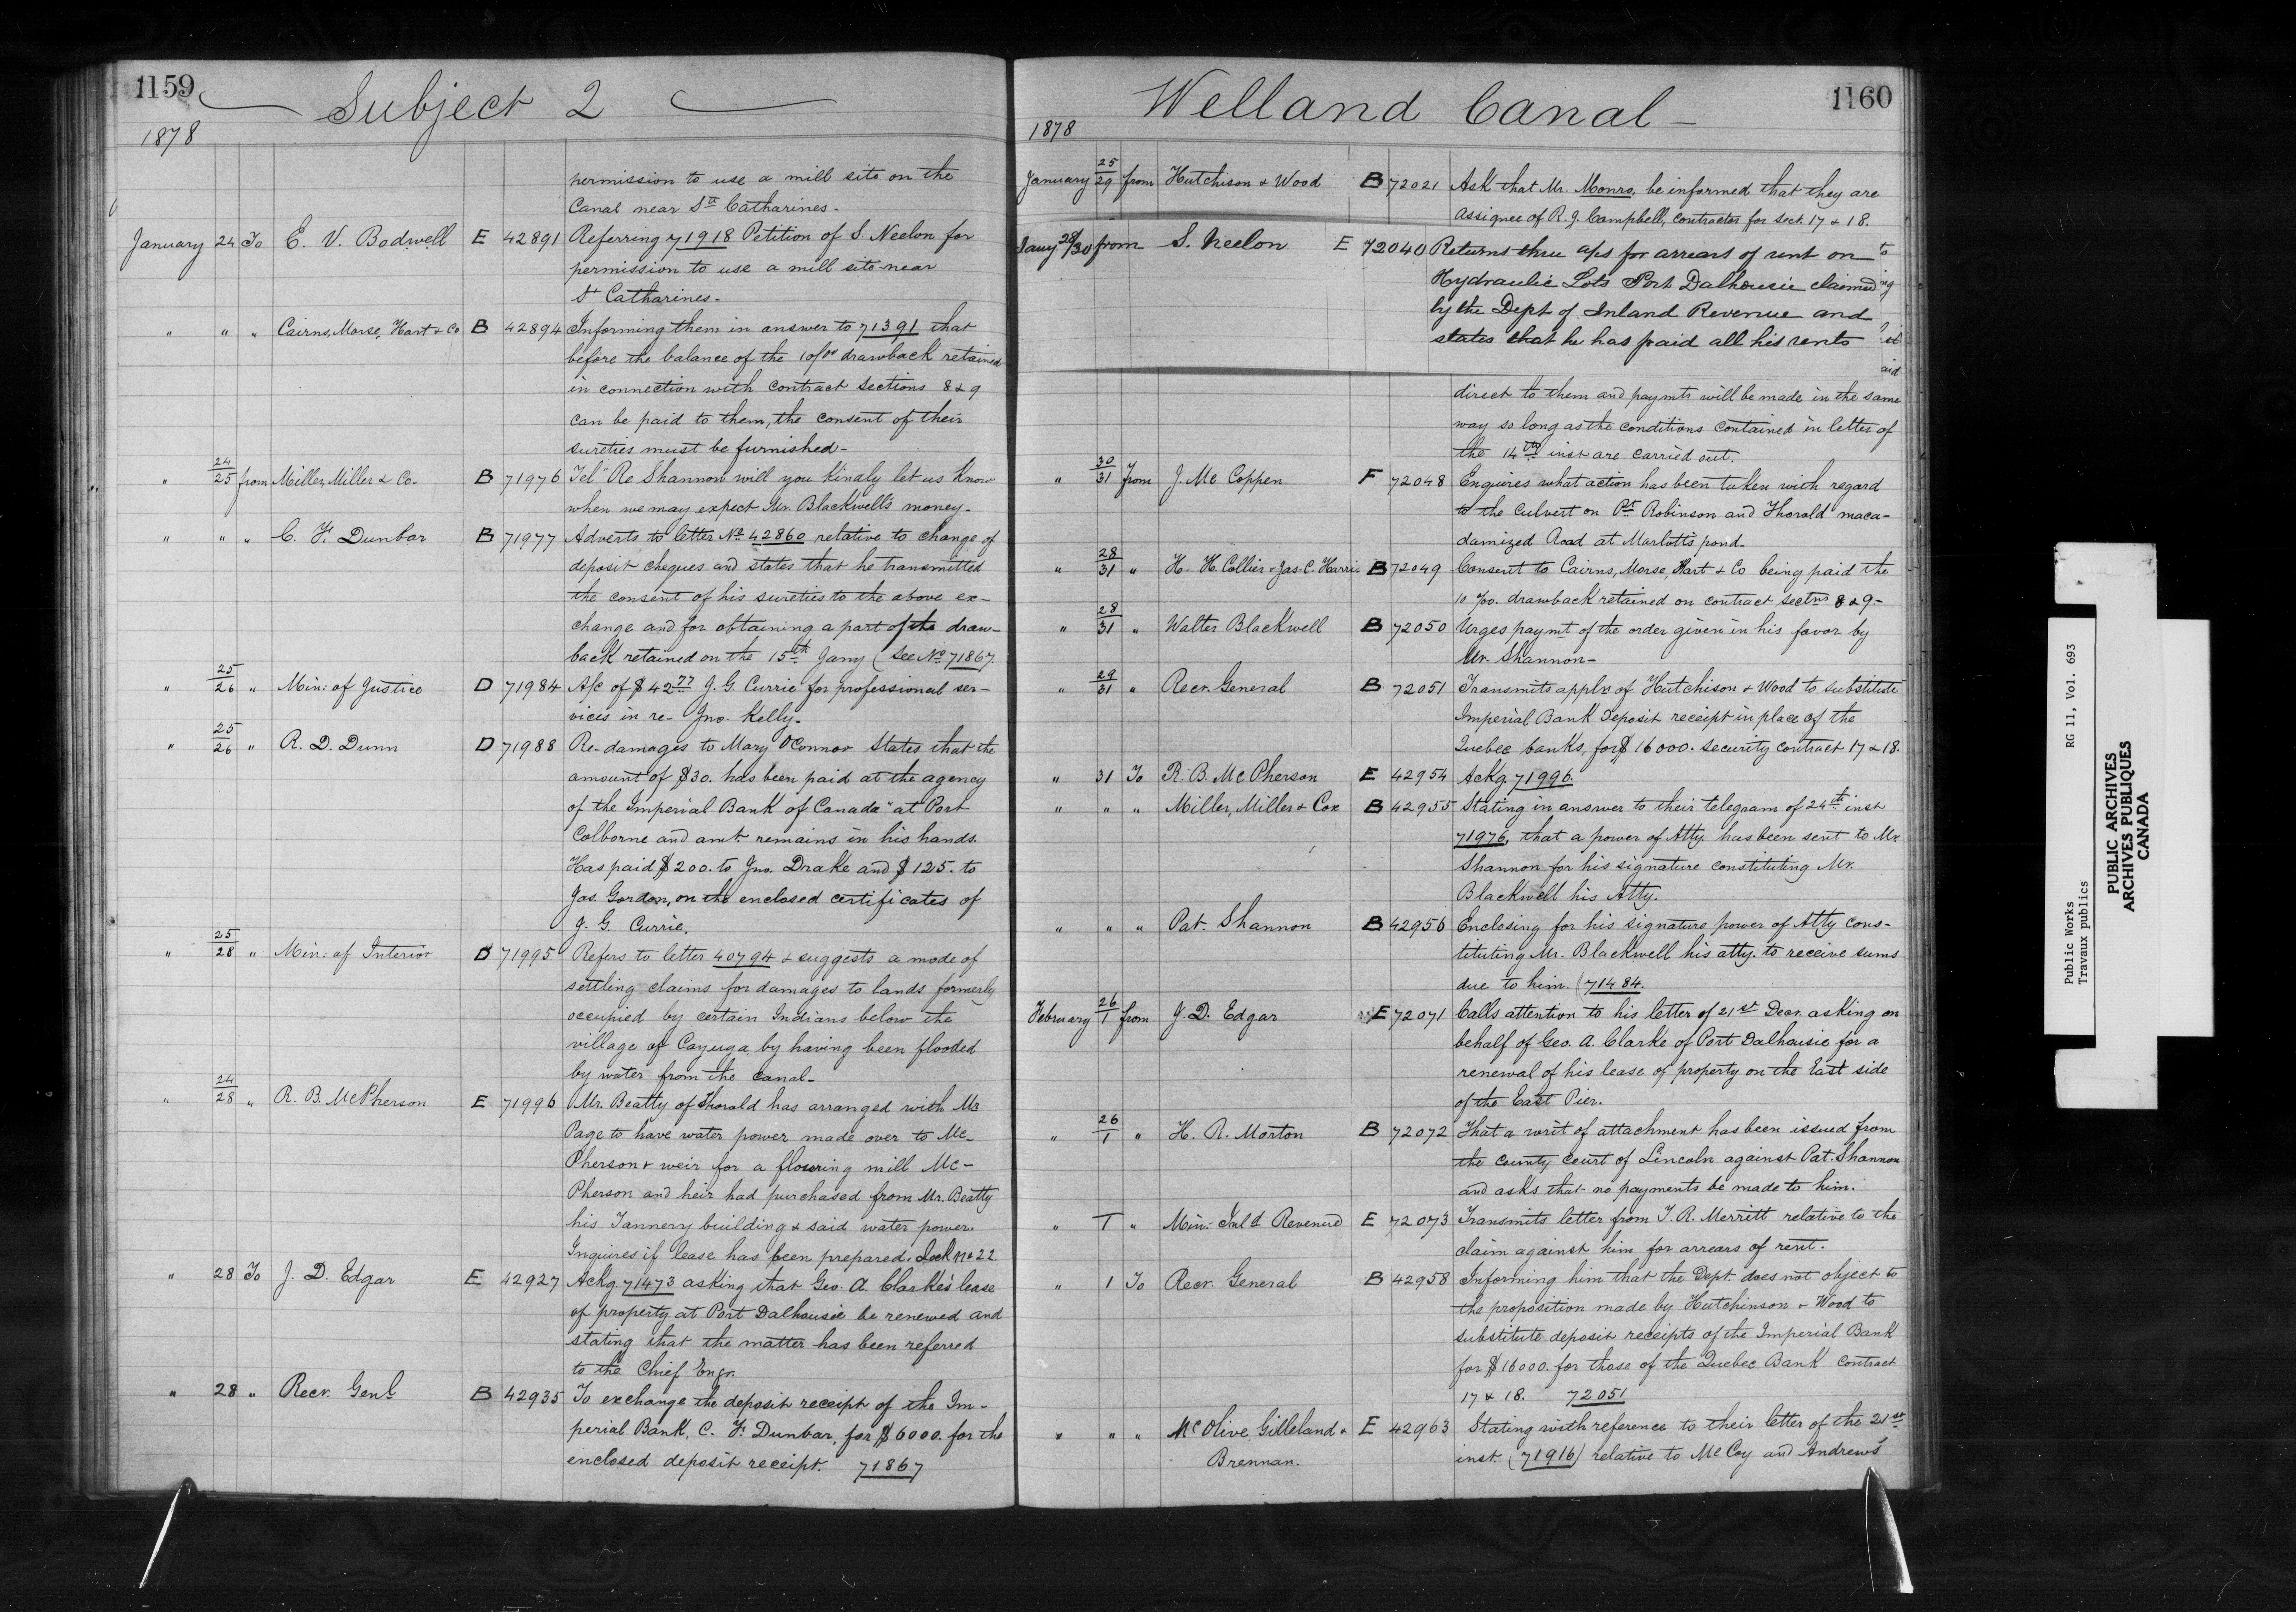 1159 Subject 2
1878
permission to use a mill site on the
Canal near St. Catharines-
January 24 To E. V. Bodwell E 42891 Referring 71918 Petition of S. Neelon for
permission to use a mill site near
St Catharines-
" " " Cairns, Morse, Hart & Co B 42894 Informing them in answer to 71391 that
before the balance of the 10 p/oo drawback retained
in connection with contract sections 8 & 9
can be paid to them, the consent of their
sureties must be furnished-
" 24/25 from Miller, Miller & Co- B 71976 Tel" Re Shannon will you kindly let us know
when we may expect Mr. Blackwell's money-
" " " C. F. Dunbar B 71977 Adverts to letter No 42860 relative to change of
deposit cheques and states that he transmitted
the consent of his sureties to the above ex-
change and for obtaining a part of the draw-
back retained on the 15th Jany (See No 71867
" 25/26 " Min: of Justice D 71984 A/c of $42 77 J. G. Currie for professional ser-
vices in re- Jno. Kelly-
" 25/26 " R. D. Dunn D 71988 Re-damages to Mary O'Connor States that the
amount of $30. has been paid at the agency
of the Imperial Bank of Canada" at Port
Colborne and amt. remains in his hands.
Has paid $200. to Jno. Drake and $125. to
Jas. Gordon, on the enclosed certificates of
J. G. Currie.
" 25/28 " Min: of Interior D 71995 Refers to letter 40794 & suggests a mode of
settling claims for damages to lands formerly
occupied by certain Indians below the
village of Cayuga by having been flooded
by water from the canal-
" 24/28 " R. B. McPherson E 71996 Mr. Beatty of Thorald has arranged with Mr
Page to have water power made over to Mc-
Pherson & weir for a flouring mill Mc-
Pherson and heir had purchased from Mr. Beatty
his Tannery building & said water power.
Inquires if lease has been prepared. Lock No 22
" 28 To J. D. Edgar E 42927 Ackg. 71473 asking that Geo. A. Clarke's lease
of property at Port Dalhousie be renewed and
stating that the matter has been referred
to the Chief Engr.
" 28 " Recr. Genl B 42935 To exchange the deposit receipt of the Im-
perial Bank, C. F. Dunbar, for $6000. for the
enclosed deposit receipt. 71867
Welland Canal- 1160
1878
January 25/29 from Hutchison & Wood B 72021 Ask that Mr. Monro, be informed that they are
Assignee of R. J. Campbell, contractor for sect. 17 & 18.
Jany 28/30 from S. Neelon E 72040 Returns three aps for arrears of rent on to
Hydraulic Lots Port Dalhousie claimed ing
by the Dept of Inland Revenue and
states that he has paid all his rents
aid
direct to them and paymts will be made in the same
way so long as the conditions contained in letter of
the 14th inst are carried out.
" 30/31 from J. Mc Coppen F 72048 Enquires what action has been taken with regard
to the Culvert on Pt. Robinson and Thorald maca-
damized Road at Marlott's pond-
" 28/31 " H. H. Collier & Jas. C. Harris B 72049 Consent to Cairns, Morse, Hart & Co being paid the
10 %oo. drawback retained on contract sectns 8 & 9-
" 28/31 " Walter Blackwell B 72050 Urges paymt of the order given in his favor by
Mr. Shannon-
" 29/31 " Recr. General B 72051 Transmits appln of Hutchison & Wood to substitute
Imperial Bank Deposit receipt in place of the
Quebec banks, for $16000. security contract 17 & 18.
" 31 To R. B. McPherson E 42954 Ackg. 71996.
" " " Miller, Miller & Cox B 42955 Stating in answer to their telegram of 24th inst
71976, that a power of Atty. has been sent to Mr.
Shannon for his signature constituting Mr.
Blackwell his Atty.
" " " Pat. Shannon B 42956 Enclosing for his signature power of Atty cons-
tituting Mr. Blackwell his atty. to receive sums
due to him. (71484.
February 26/1 from J. D. Edgar E 72071 Calls attention to his letter of 21st Decr. asking on
behalf of Geo. A. Clarke of Port Dalhousie for a
renewal of his lease of property on the East side
of the East Pier.
" 26/1 " H. R. Morton B 72072 That a writ of attachment has been issued from
the County Court of Lincoln against Pat. Shannon
and asks that no payments be made to him.
" 1 " Min: Inld Revenue E 72073 Transmits letter from T. R. Merritt relative to the
claim against him for arrears of rent.
" 1 To Recr. General B 42958 Informing him that the Dept. does not object to
the proposition made by Hutchinson & Wood to
substitute deposit receipts of the Imperial Bank
for $16000. for those of the Quebec Bank Contract
17 & 18. 72051
" " " McOlive Gilleland & E 42963 Stating with reference to their letter of the 21st
Brennan. inst. (71916) relative to McCoy and Andrews'
Public Works RG 11, Vol. 693
Travaux publics
PUBLIC ARCHIVES
ARCHIVES PUBLIQUES
CANADA